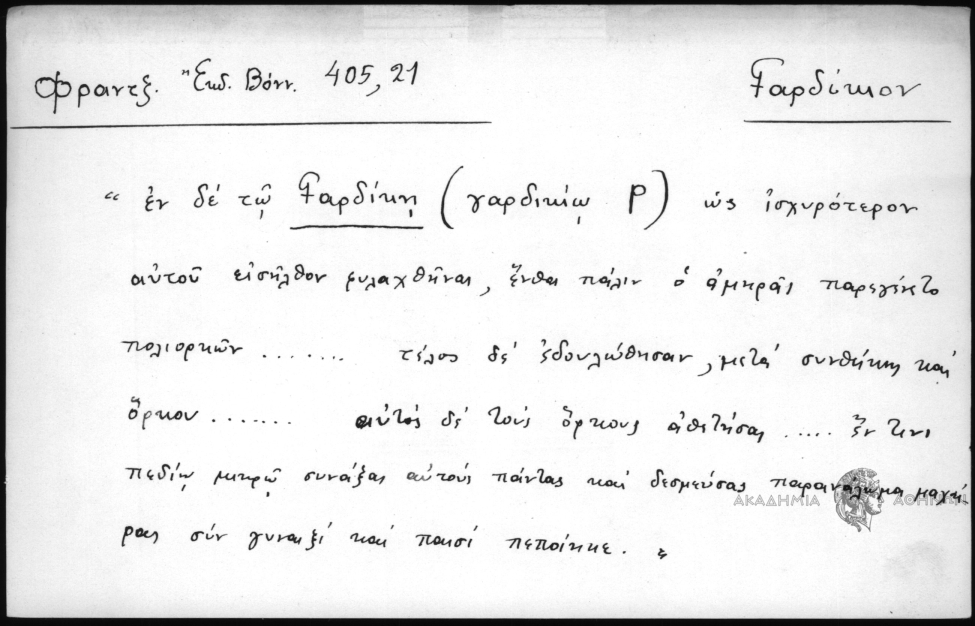 Φραντζ. Ἔκδ. Βόνν. 405,21
Γαρδίκιον
“ ἐν δέ τῷ Γαρδίκῃ (γαρδικίῳ P) ὡς ἰσχυρότερον
αὐτοῦ εἰσῆλθον φυλαχθῆναι, ἔνθα πάλιν ὁ ἀμηρᾶς παρεγένετο
πολιορκῶν ........ τέλος δέ ἐδουλώθησαν, μετά συνθήκης καί
ὅρκου ....... αὐτός δέ τούς ὅρκους ἀθετήσας ..... ἔν τινι
πεδίῳ μικρῷ συνάξας αὐτούς πάντας καί δεσμεύσας παρανάλωμα μαχαί
ρας σύν γυναιξί καί παισί πεποίηκε. „
ΑΚΑΔΗΜΙΑ ΑΘΗΝΩΝ